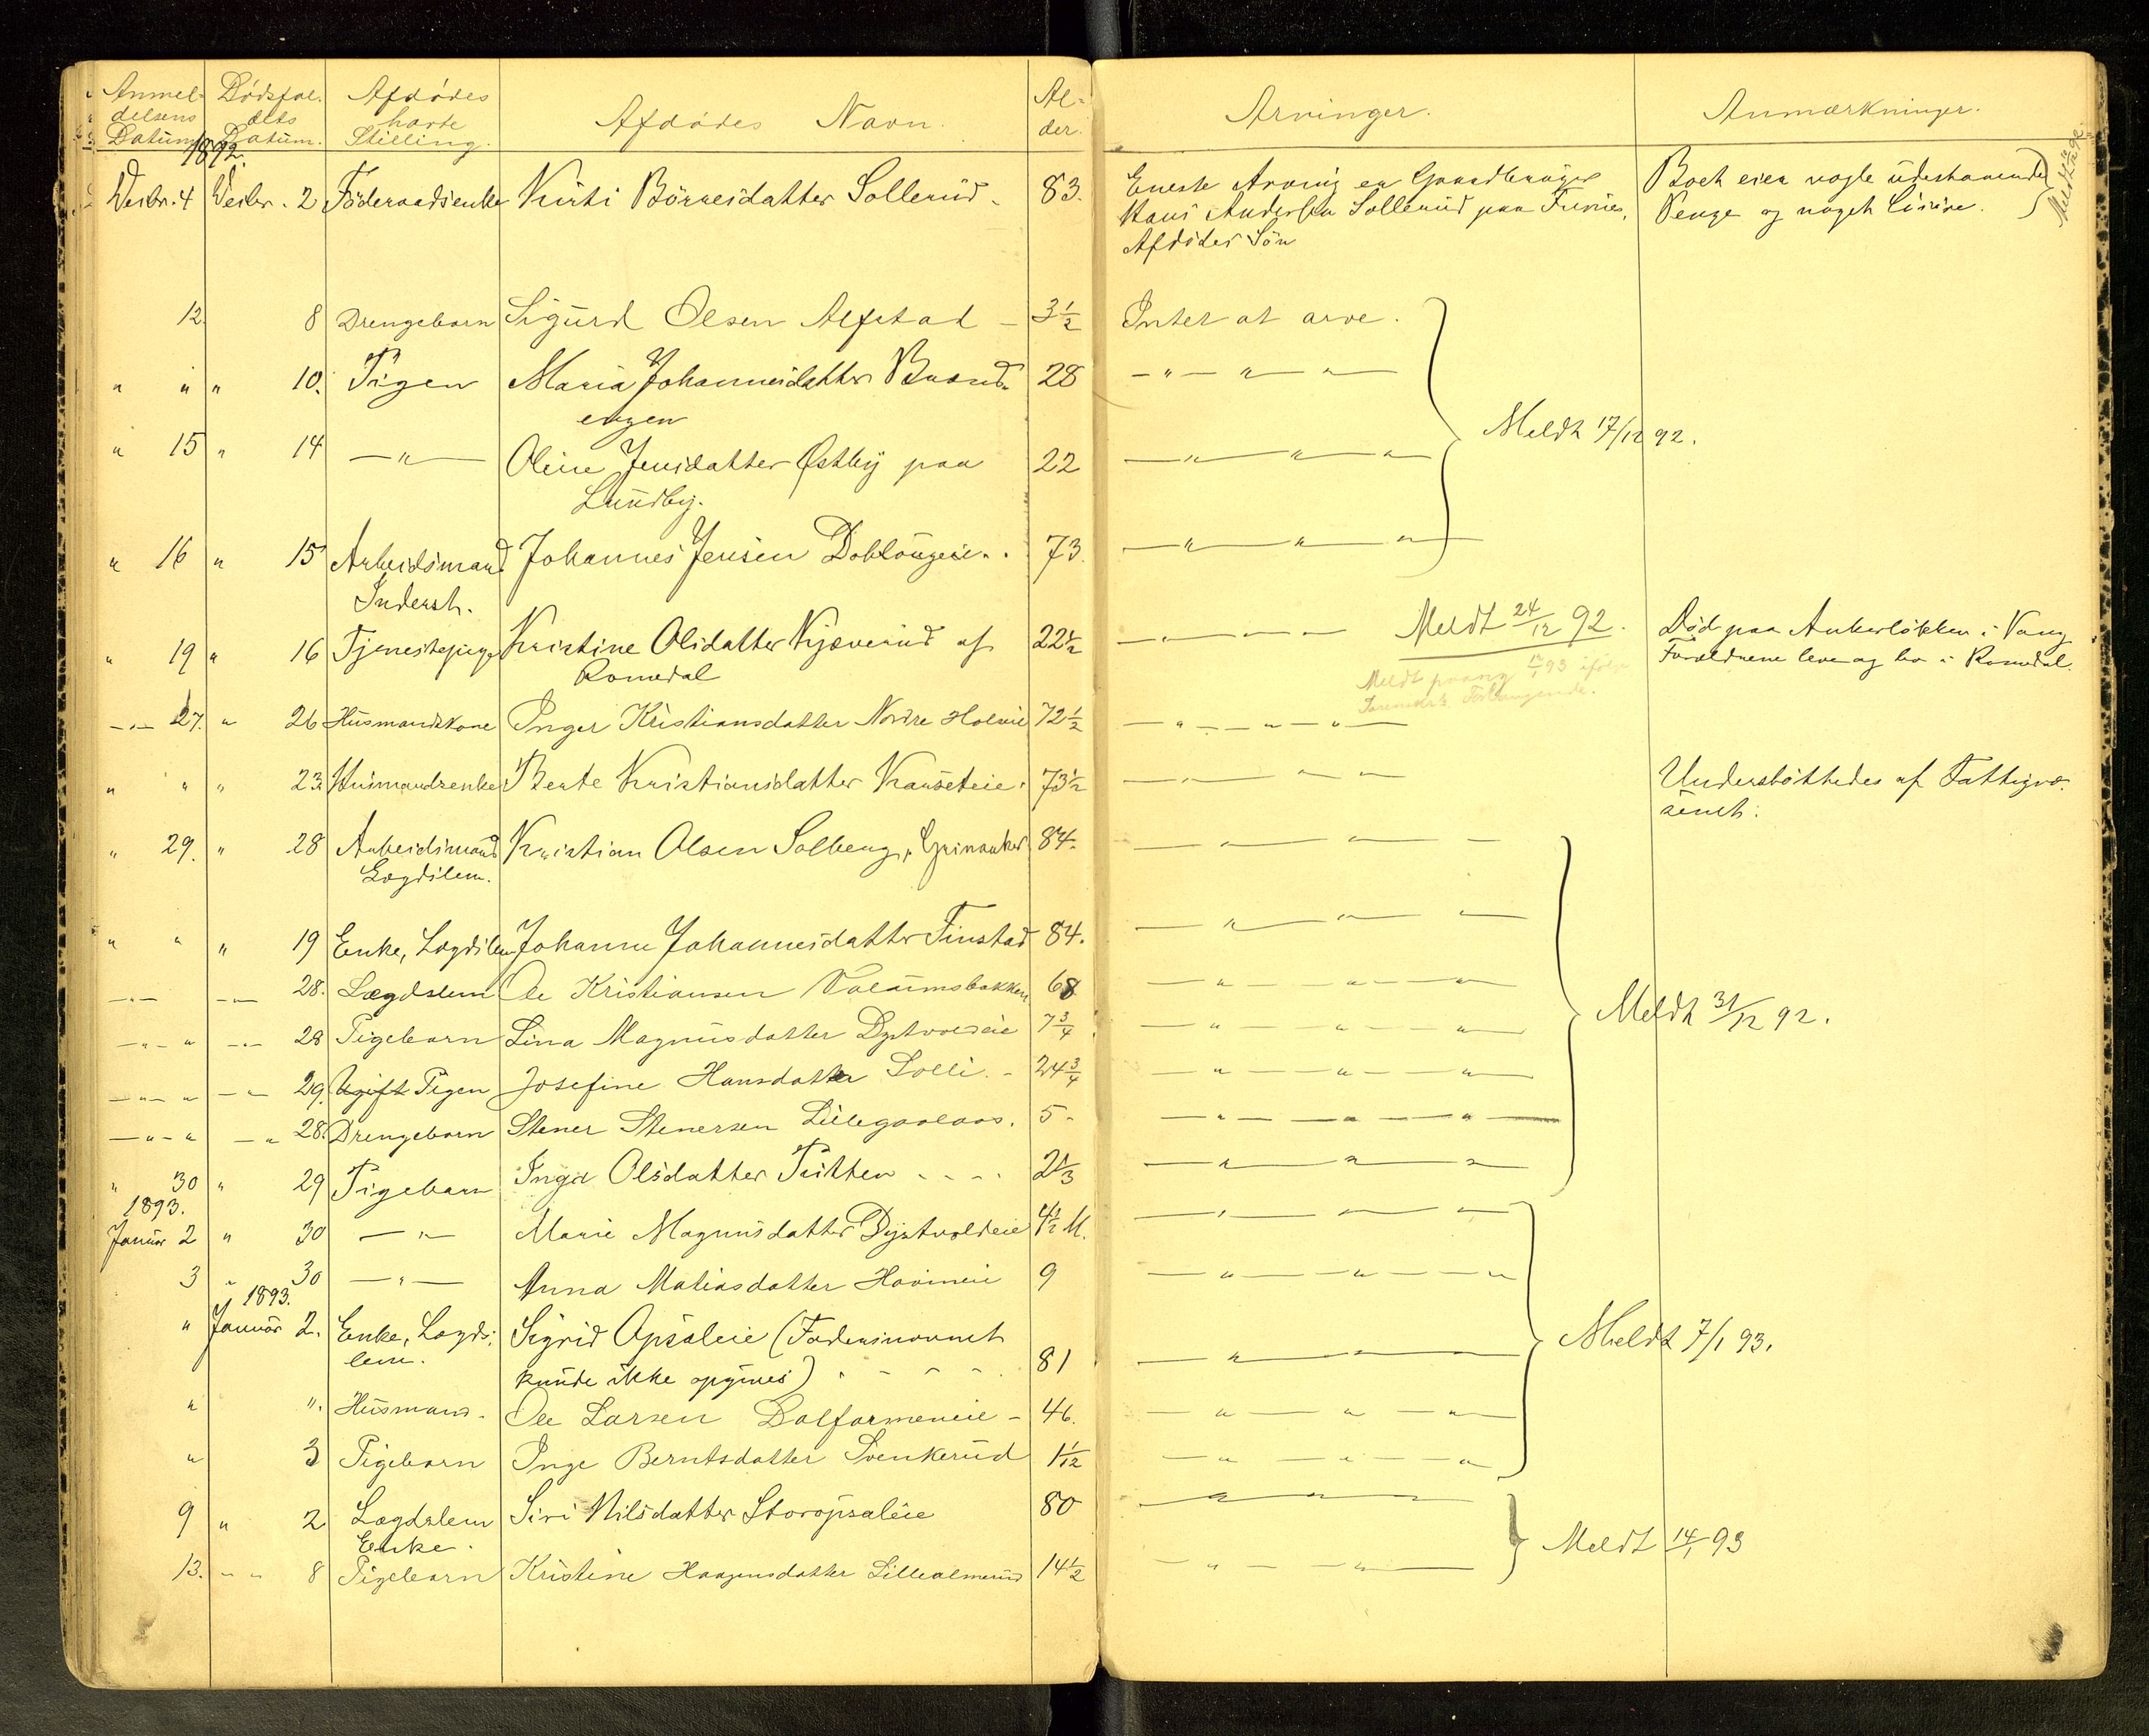 Anmel- Dødsfal- Afdødes Al-
delsens dets havte Afdødes Navn. der. Arvinger. Anmærkninger.
Datum Datum. Stilling.
1892.
Decbr. 4 Decbr. 2 Föderaadsenke Kirsti Börresdatter Sollerud. 83. Eneste Arving er Gaardbruger Boet eier nogle udestaaende
Hans Andersen Sollerud paa Furnes, Penge og noget Lösöre.
Afdödes Sön
12. 8 Drengebarn Sigurd Olsen Alfstad - 3 1/2 Intet at arve.
" " " 10. Pigen Maria Johannesdatter Brænd- 28 - " - " - " -
engen
Meldt 17/12 92.
" 15 " 14 - " - Oline Jensdatter Østby paa 22 - " - " - " -
Lundby.
" 16 " 15 Arbeidsmand Johannes Jensen Doblougeie. 73. - " - " - " -
Inderst.
" 19 " 16 Tjenestepige Kristine Olsdatter Kjæverud af 22 1/2 - " - " - Meldt 24/12 92. Död paa Ankerlökken i Vang
Romedal Forældrene lever og bo i Romedal.
Meldt paany 93 ifølge
Forlangende.
- " - 27. " 26 Husmandskone Inger Kristiansdatter Nordre Holseie 72 1/2 - " - " - " -
" " " 23 Husmandsenke Berte Kristiansdatter Kauseteie. 73 1/2 - " - " - Understöttedes af Fattigvæ-
senet.
" 29. " 28 Arbeidsmand Kristian Olsen Solberg, Grinaker 84. - " - " -
Lægdslem.
" " " 19 Enke, Lægdslem Johanne Johannesdatter Finstad 84. - " - " -
- " - - " - 28. Lægdslem Ole Kristiansen Valaumsbakken 68 - " - " - " -
Meldt 31/12 92.
- " - " - " - 28 Pigebarn Lina Magnusdatter Dystvoldeie 7 3/4 - " - " - " -
- " - " - " - 29. Ugift Pigen Josefine Hansdatter Lolli. - 24 3/4 - " - " - " -
- " - " - " 28. Drengebarn Stener Stenersen Lillegaalaas. 5 - - " - " - " -
" 30 " 29 Pigebarn Inga Olsdatter Tritten - - - 2 1/3 - " - " - " -
1893.
Januar 2 " 30 - " - Marie Magnusdatter Dystvoldeie 4 1/2 M. - " - " -
3 " 30 - " - Anna Matiasdatter Hovineie 9 - " - " - "
1893.
" Januar 2. Enke, Lægds- Sigrid Opsaleie (Fadersnavnet
Meldt 7/1 93.
lem. kunde ikke opgives) 81 - " -
" ". Husmand - Ole Larsen Dalfarmeneie - 46. - " - " - " -
" 3 Pigebarn Inge Berntsdatter Svenkerud 1 1/12 - " - " - " -
9 " 2 Lægdslem Siri Nilsdatter Storopsaleie 80 - " - " -
Enke.
Meldt 14/1 93
13. - " - 8 Pigebarn Kristine Haagensdatter Lillealmerud 14 1/2 - " - " -